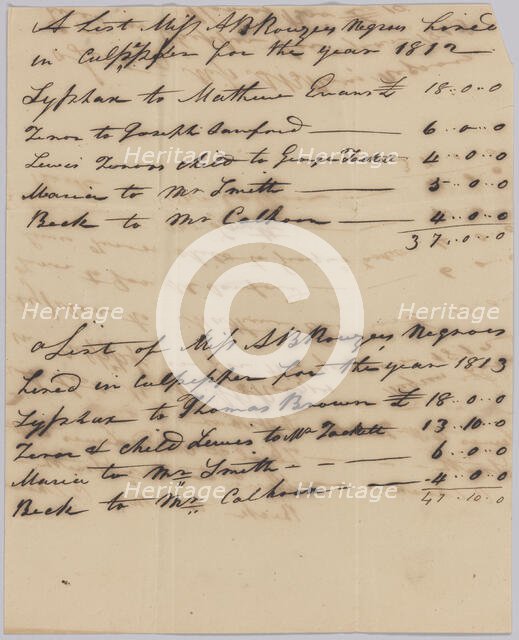 A List Miss AB Rouzees Negroes hired
in Culpepper for the year 1812
Syphax to Mathew Evans £ 18..0..0
Zenor to Joseph Sanford 6..0..0
Lewis Zenors Child to George 4..0..0
Maria to Mr Smith 5..0..0
Beck to Mr Calhoon 4..0..0
37..0..0
a List of Miss AB Rouzees Negroes
hired in Culpepper for the year 1813
Syphax to Thomas Brown £ 18..0..0
Zenor & Child Lewis to Mr Tackett 13..10..0
Maria to Mr Smith 6..0..0
Beck to Mr Calhoon 4..0..0
47..10..0